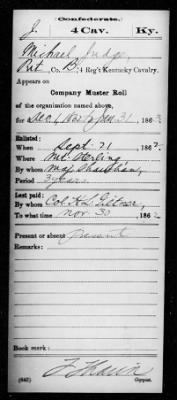 Confederate.
J. 4 Cav. Ky.
Michael Judge
Pvt, Co. B, 4 Reg't Kentucky Cavalry.
Appears on
Company Muster Roll
of the organization named above,
for Dec 1, 1862 to Jan 31, 186
Enlisted:
When Sept. 21, 1862
Where Mt. Sterling
By whom Maj Shawhan,
Period 3 years
Last paid:
By whom Col. H. L. Giltner,
To what time Nov. 30, 1862
Present or absent present
Remarks:
Book mark:
(642) Copyist.